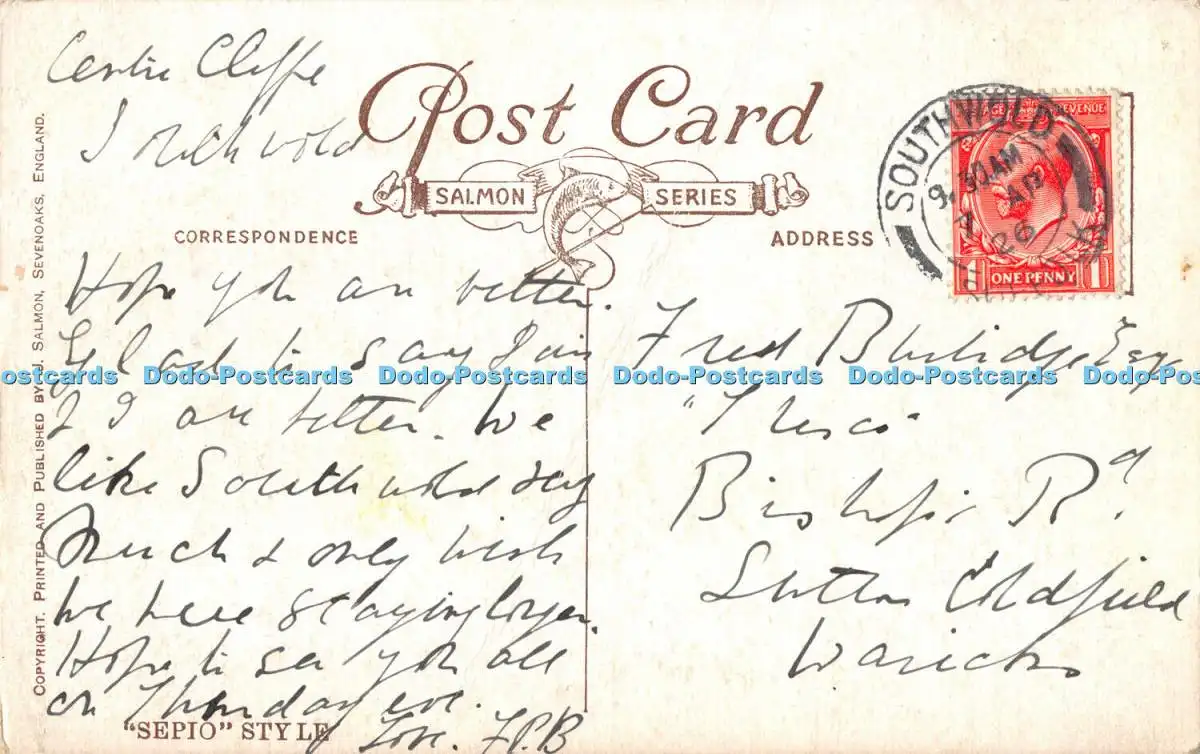 Centre Cliffe
Southwold
Post Card
SALMON SERIES
CORRESPONDENCE
ADDRESS
COPYRIGHT. PRINTED AND PUBLISHED BY J. SALMON, SEVENOAKS, ENGLAND.
SOUTHWOLD
9.30AM
1 AP
26
REVENUE
1 ONE PENNY 1
Hope you are better.
Glad to say
& I are better. We
like Southwold very
much & only wish
we were staying longer.
Hope to see you all
on Thursday eve.
Love. F.P.B
"SEPIO" STYLE
Fred Burbidge Esq
Bishops Rd.
Sutton Coldfield
Waricks
Dodo-Postcards Dodo-Postcards Dodo-Postcards Dodo-Postcards Dodo-Postcards